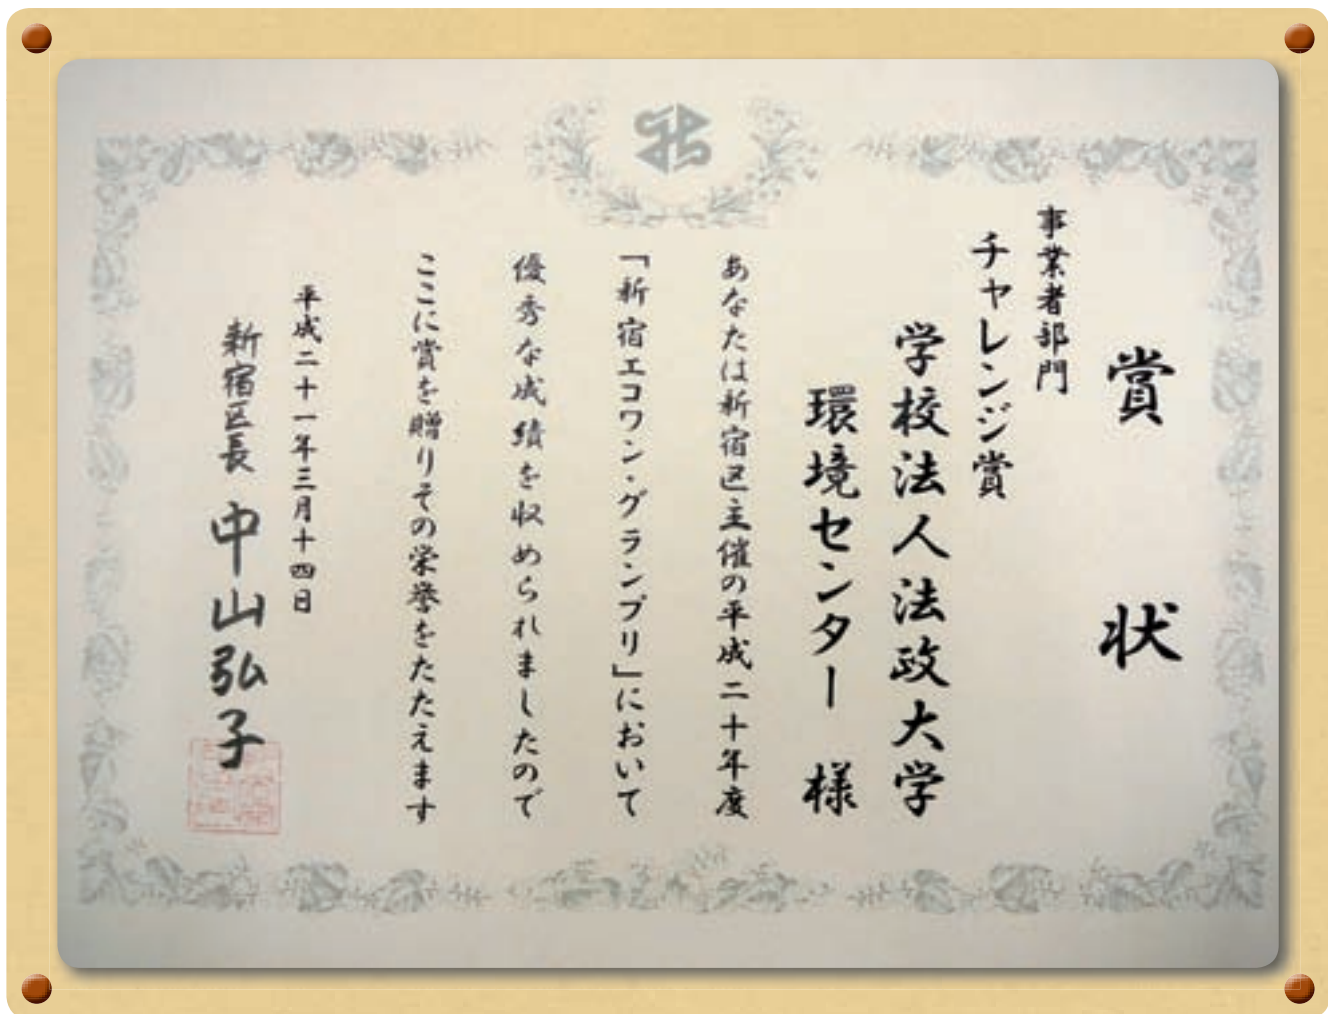 賞状
事業者部門
チャレンジ賞
学校法人法政大学
環境センター 様
あなたは新宿区主催の平成二十年度
「新宿エコワン・グランプリ」において
優秀な成績を収められましたので
ここに賞を贈りその栄誉をたたえます
平成二十一年三月十四日
新宿区長 中山弘子